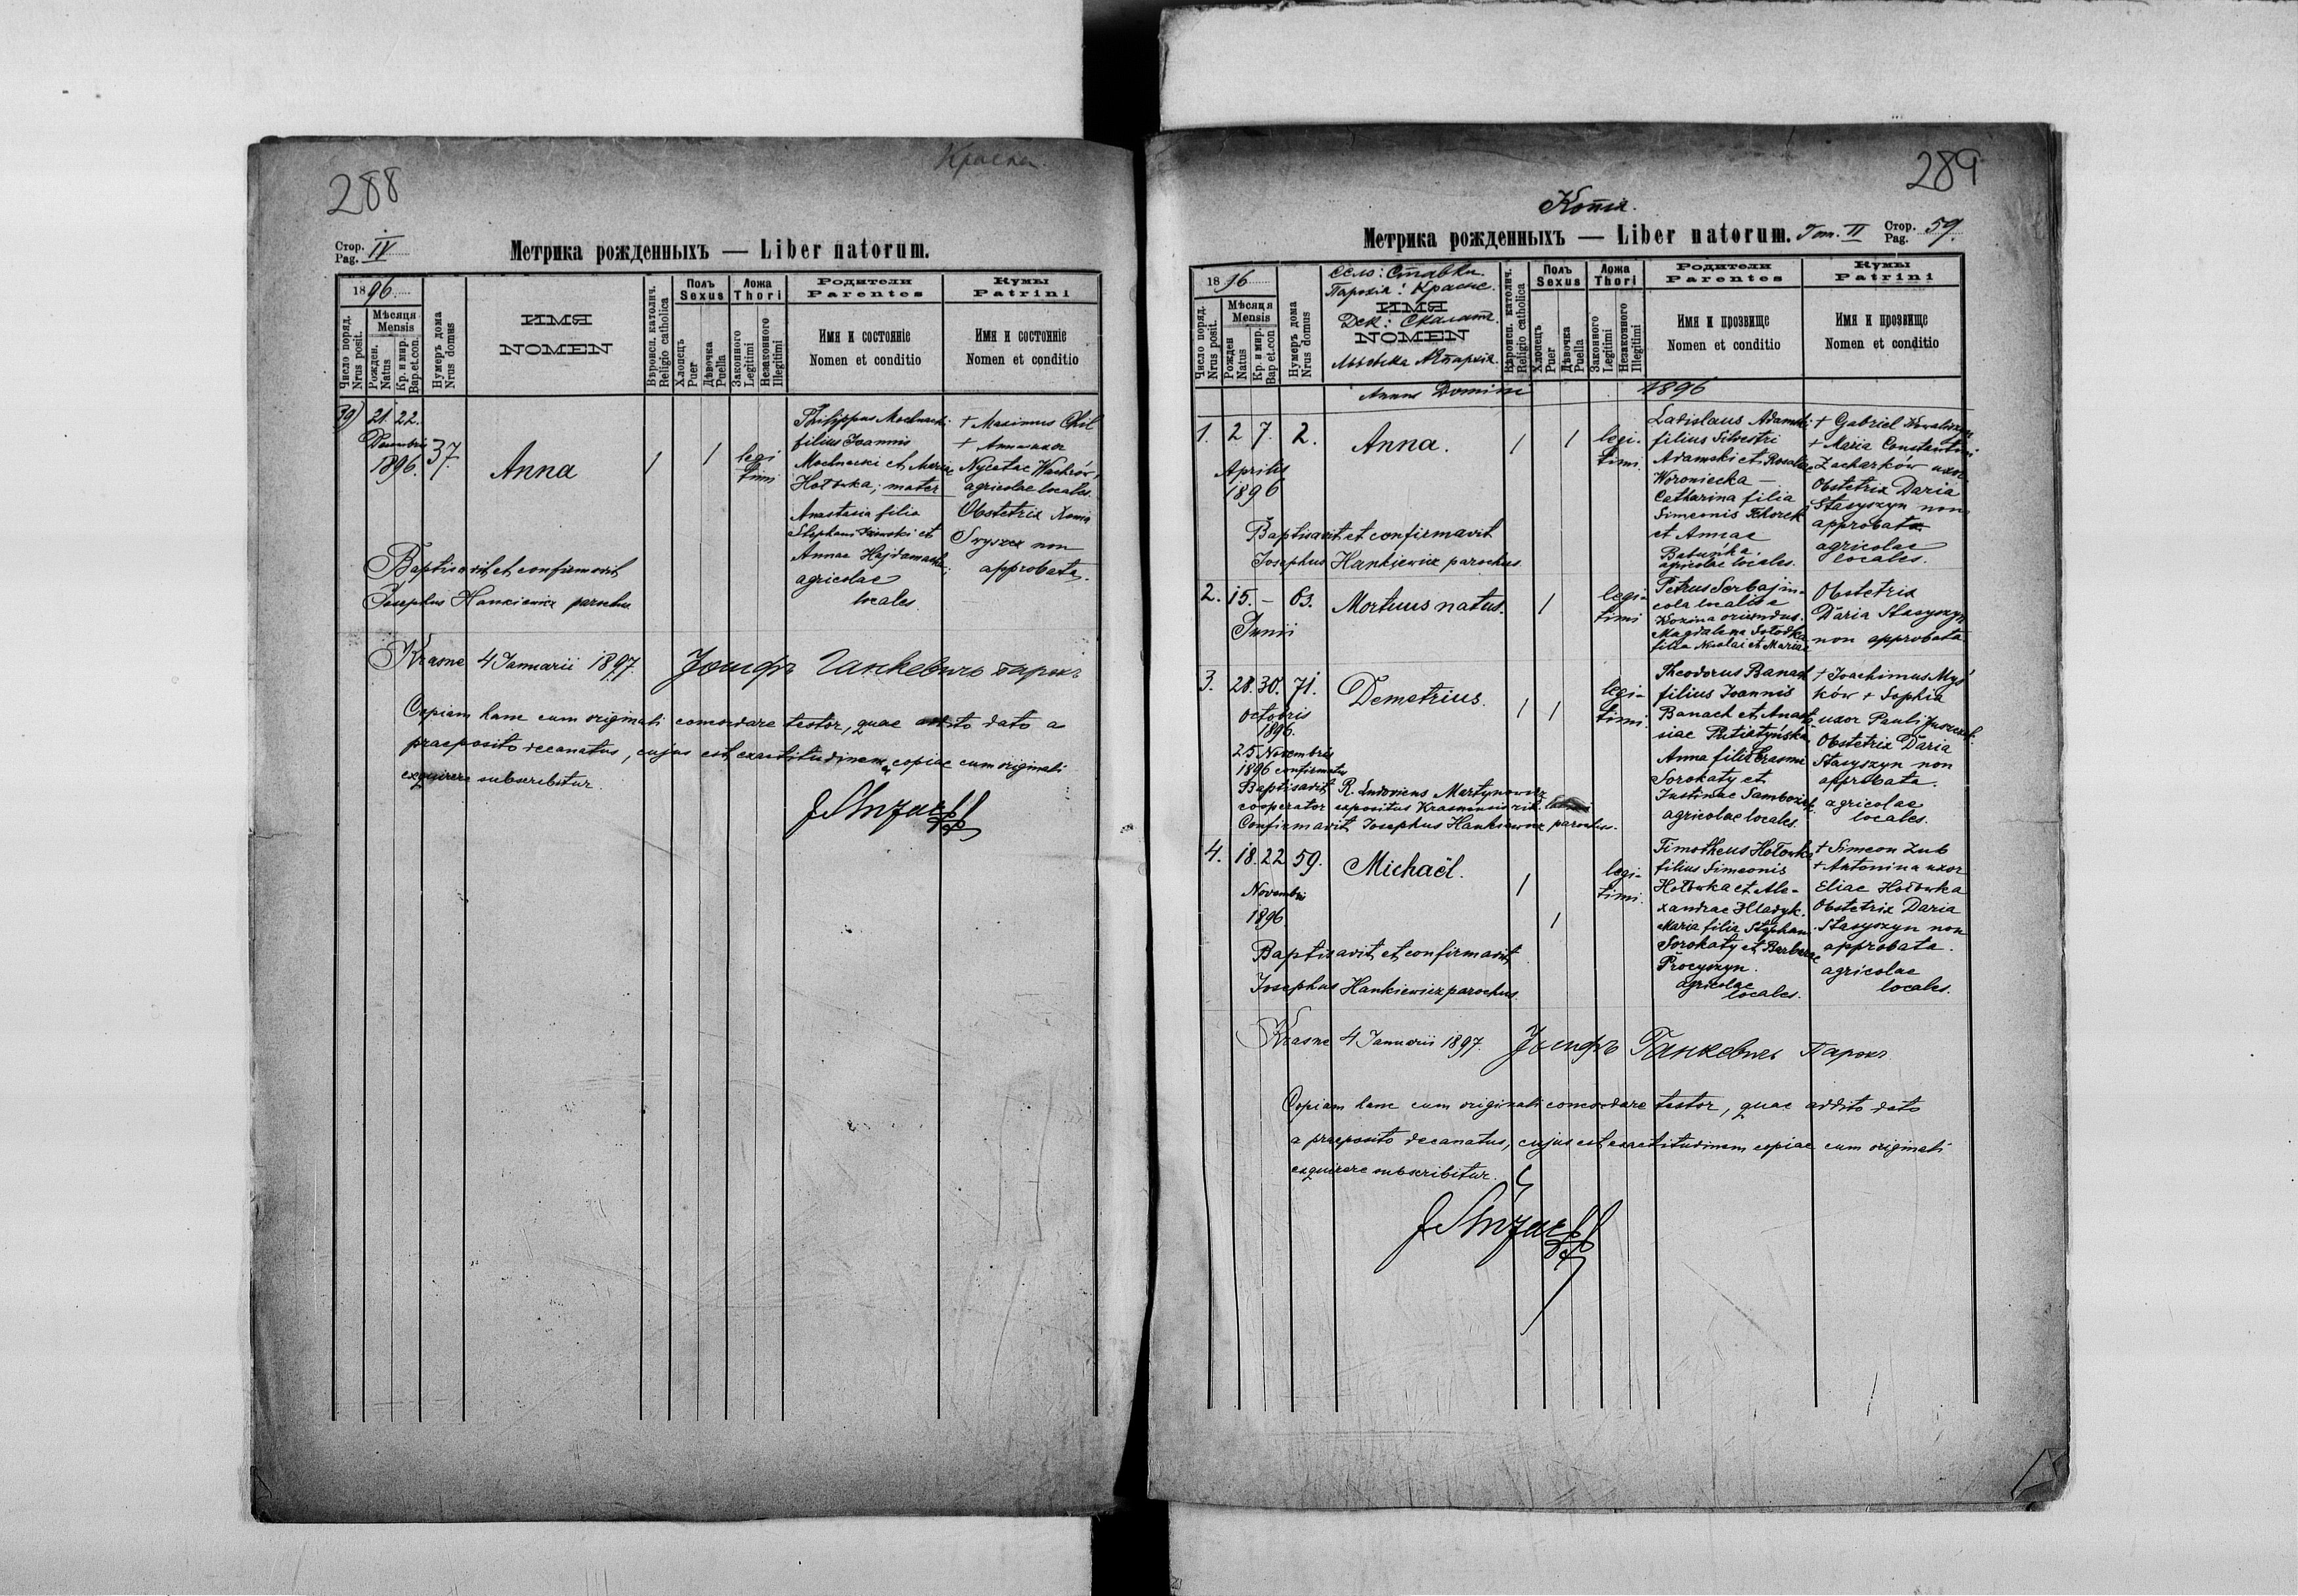 288
Красне
Стор.
Pag. IV
Метрика рожденныхъ — Liber natorum.
1896
Число поряд.
Nrus posit.
Мѣсяця
Mensis
Рожден.
Natus
Кр. и мир.
Bap. et. con.
Нумеръ дома
Nrus domus
ИМЯ
NOMEN
Вѣроисп. католич.
Religio catholica
Полъ
Sexus
Хлопецъ
Puer
Дѣвочка
Puella
Ложа
Thori
Законного
Legitimi
Незаконного
Illegitimi
Родители
Parentes
Имя и состоянiе
Nomen et conditio
Кумы
Patrini
Имя и состоянiе
Nomen et conditio
39) 21. 22.
Decembris
1896.
37.
Anna
1
1
legi
timi
Philippus Mochnacki
filius Joannis
Mochnacki et Mariae
Hołowka; mater
Anastasia filia
Stephani
Annae Hajdamacha;
agricolae
locales.
+ Maximus
+ Anna uxor
Nycetae Wachrów,
agricolae locales.
Obstetrix
non
approbata.
Baptisavit et confirmavit
Josephus Hankiewicz parochus
Krasne 4 Januarii 1897. Іосифъ Ганкевичъ парохъ
Copiam hanc cum originali concordare testor, quae addito dato a
praeposito decanatus, cujus est exactitudinem copiae cum originali
exquirere subscribitur.
289
Копія.
Метрика рожденныхъ — Liber natorum. Tom. II Стор.
Pag. 59.
1896
Число поряд.
Nrus posit.
Мѣсяця
Mensis
Рожден
Natus
Кр. и мир.
Bap et.con
Нумеръ дома
Nrus domus
Село: Ставки.
Парохія: Красне.
ИМЯ
Дек: Скалатъ.
NOMEN
Львовска Аепархія
Вѣроисп. католич.
Religio catholica
Полъ
Sexus
Хлопецъ
Puer
Дѣвочка
Puella
Ложа
Thori
Законного
Legitimi
Незаконного
Illegitimi
Родители
Parentes
Имя и прозвище
Nomen et conditio
Кумы
Patrini
Имя и прозвище
Nomen et conditio
Annus Domini 1896
1. 2 7. 2.
Aprilis
1896
Anna.
1
1
legi-
timi.
Ladislaus Adamski
filius Silvestri
Adamski et Rosaliae
Woroniecka —
Catharina filia
Simeonis Tchorek
et Annae
Batuńka.
agricolae locales.
+ Gabriel Kowaliszyn
+ Maria Constantini
Zacharków uxor
Obstetrix Daria
Stasyszyn non
approbata
agricolae
locales.
Baptisavit et confirmavit
Josephus Hankiewicz parochus.
2. 15. — 63.
Junii
Mortuus natus.
1
legi-
timi
Petrus Serbaj in-
cola localis e
Kozina oriundus.
Magdalena Sołodka
filia Nicolai et Mariae
Obstetrix
Daria Stasyszyn
non approbata
3. 28. 30. 71.
Octobris
1896.
25 Novembris
1896 confirmatus
Demetrius.
1
1
legi-
timi.
Theodorus Banach
filius Joannis
Banach et Anasta-
siae
Anna filia Erasmi
Sorokaty et
Justinae
agricolae locales.
+ Joachimus Myś
ków + Sophia
uxor Pauli
Obstetrix Daria
Stasyszyn non
approbata.
agricolae
locales.
Baptisavit R. Ludovicus Martynowicz
cooperator expositus Krasnensis rit. latini
Confirmavit Josephus Hankiewicz parochus.
4. 18. 22 59.
Novembris
1896
Michaël.
1
1
legi-
timi.
Timotheus Hołowka
filius Simeonis
Hołowka et Ale-
xandrae Hladyk.
Maria filia Stephani
Sorokaty et Barbarae
Procyszyn.
agricolae
locales.
+ Simeon Zub
+ Antonina uxor
Eliae Hołowka
Obstetrix Daria
Stasyszyn non
approbata.
agricolae
locales.
Baptisavit et confirmavit
Josephus Hankiewicz parochus
Krasne 4 Januarii 1897. Іосифъ Ганкевичъ Парохъ
Copiam hanc cum originali concordare testor, quae addito dato
a praeposito decanatus, cujus est exactitudinem copiae cum originali
exquirere subscribitur.